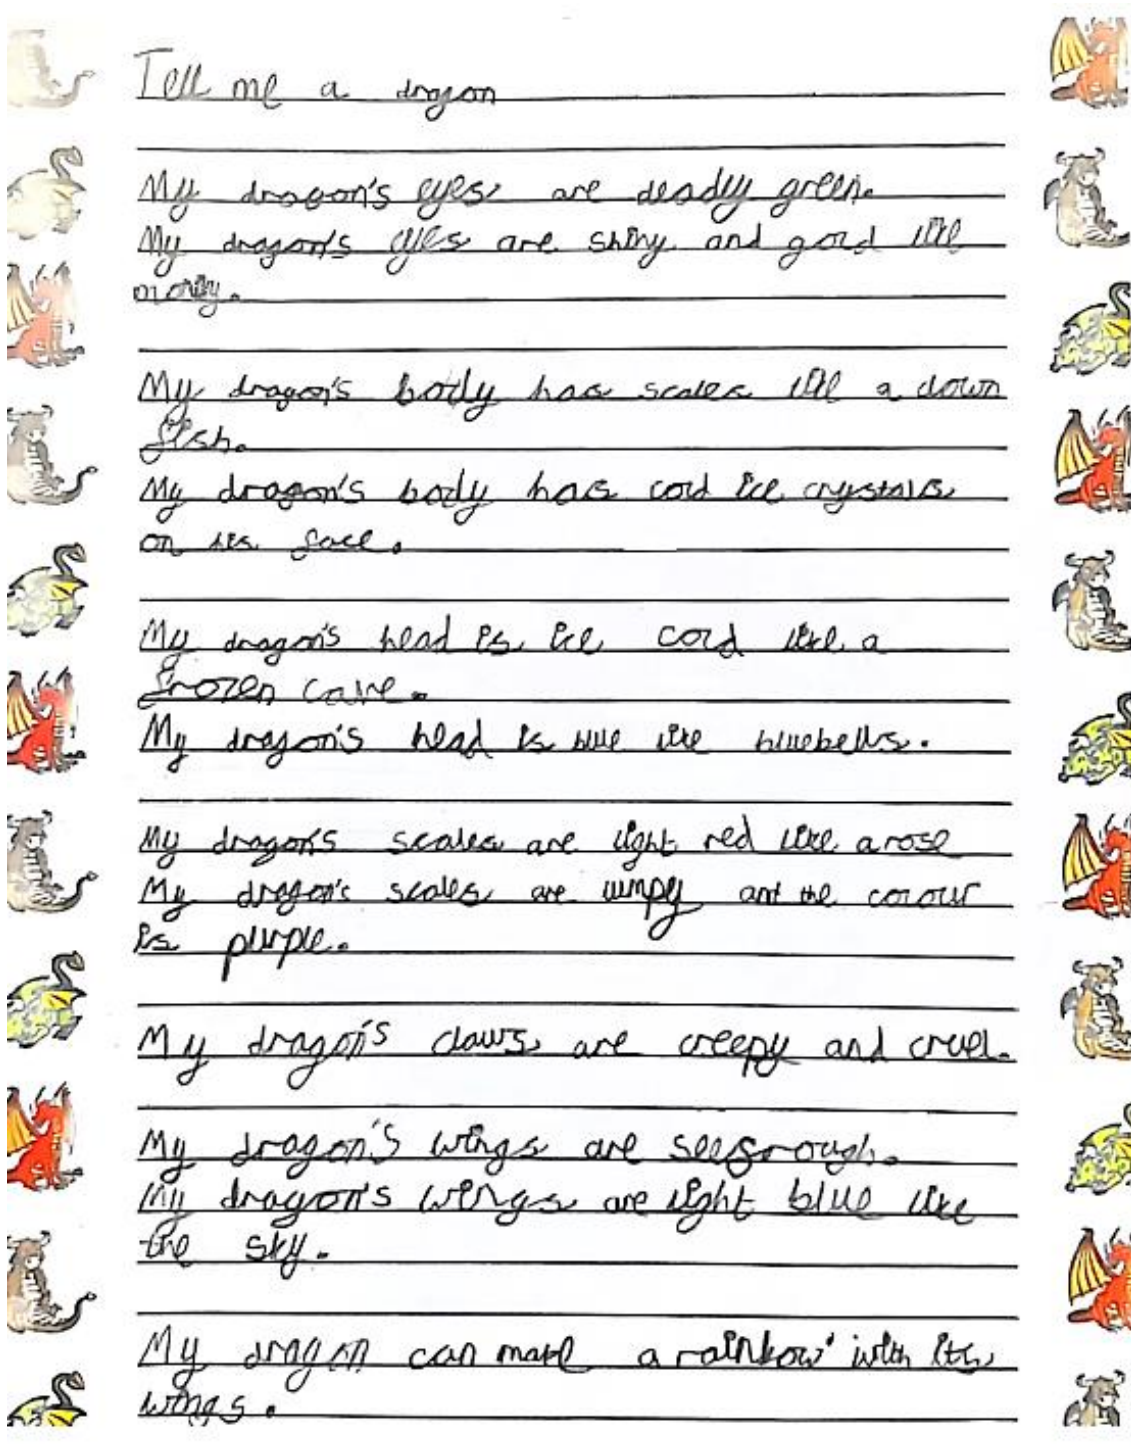 Tell me a dragon
My dragon's eyes are deadly green.
My dragon's eyes are shiny and gold like
money.
My dragon's body has scales like a clown
fish.
My dragon's body has cold ice crystals
on its face.
My dragon's head is ice cold like a
frozen cave.
My dragon's head is blue like bluebells.
My dragon's scales are light red like a rose
My dragon's scales are lumpy and the colour
is purple.
My dragon's claws are creepy and cruel.
My dragon's wings are seefrough.
My dragon's wings are light blue like
the sky.
My dragon can make a rainbow with its
wings.